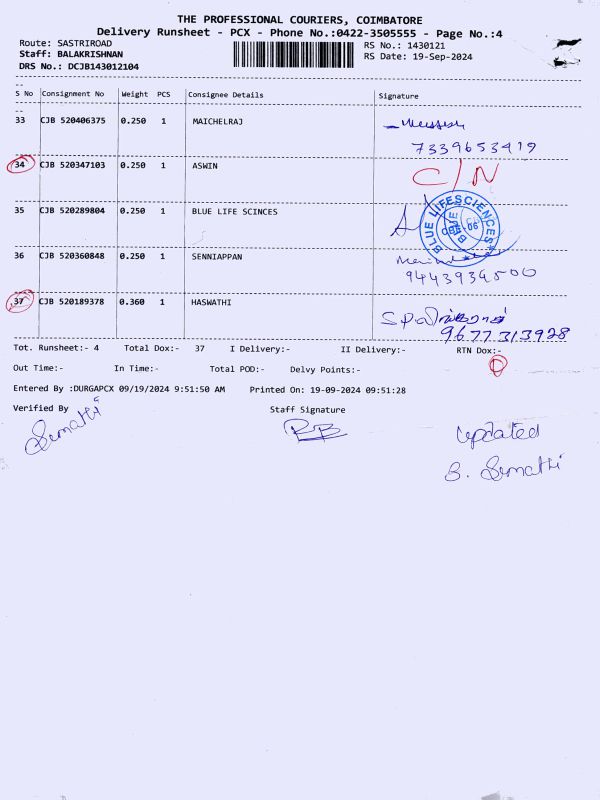 THE PROFESSIONAL COURIERS, COIMBATORE
Delivery Runsheet - PCX - Phone No.:0422-3505555 - Page No.:4
Route: SASTRIROAD RS No.: 1430121
Staff: BALAKRISHNAN RS Date: 19-Sep-2024
DRS No.: DCJB143012104
S No Consignment No Weight PCS Consignee Details Signature
33 CJB 520406375 0.250 1 MAICHELRAJ
7339653419
34 CJB 520347103 0.250 1 ASWIN C/N
35 CJB 520289804 0.250 1 BLUE LIFE SCINCES
BLUE LIFESCIENCES
36 CJB 520360848 0.250 1 SENNIAPPAN
9443934500
37 CJB 520189378 0.360 1 HASWATHI
9677313928
Tot. Runsheet:- 4 Total Dox:- 37 I Delivery:- II Delivery:- RTN Dox:-
Out Time:- In Time:- Total POD:- Delvy Points:-
Entered By :DURGAPCX 09/19/2024 9:51:50 AM Printed On: 19-09-2024 09:51:28
Verified By Staff Signature
Sumathi RB updated
B. Sumathi